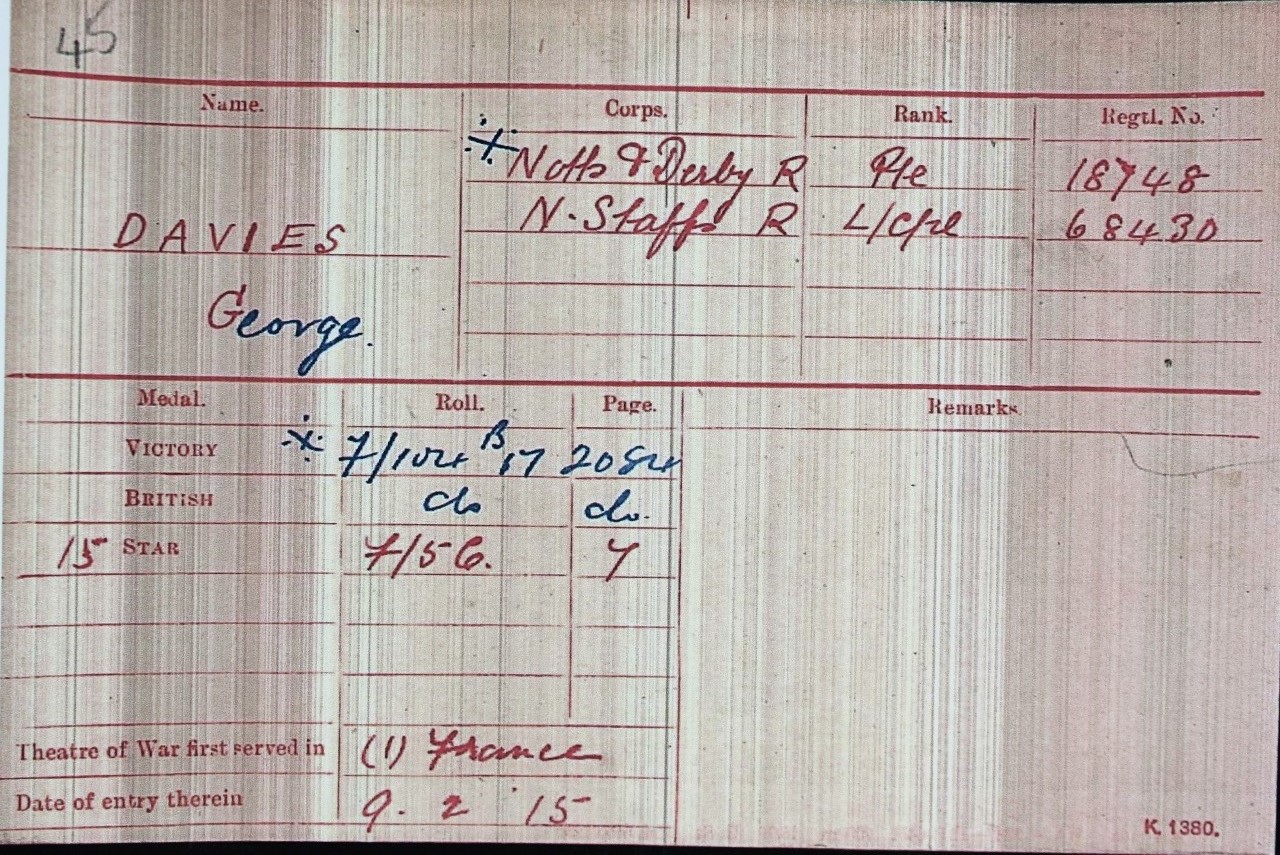 45
Name. Corps. Rank. Regtl. No.
※ Notts & Derby R Pte 18748
DAVIES N. Staffs R L/Cpl 68430
George.
Medal. Roll. Page. Remarks.
VICTORY ※ 7/104 B 17 2084
BRITISH do do.
15 STAR 7/5 C. 7
Theatre of War first served in (1) France
Date of entry therein 9. 2 '15
K. 1380.